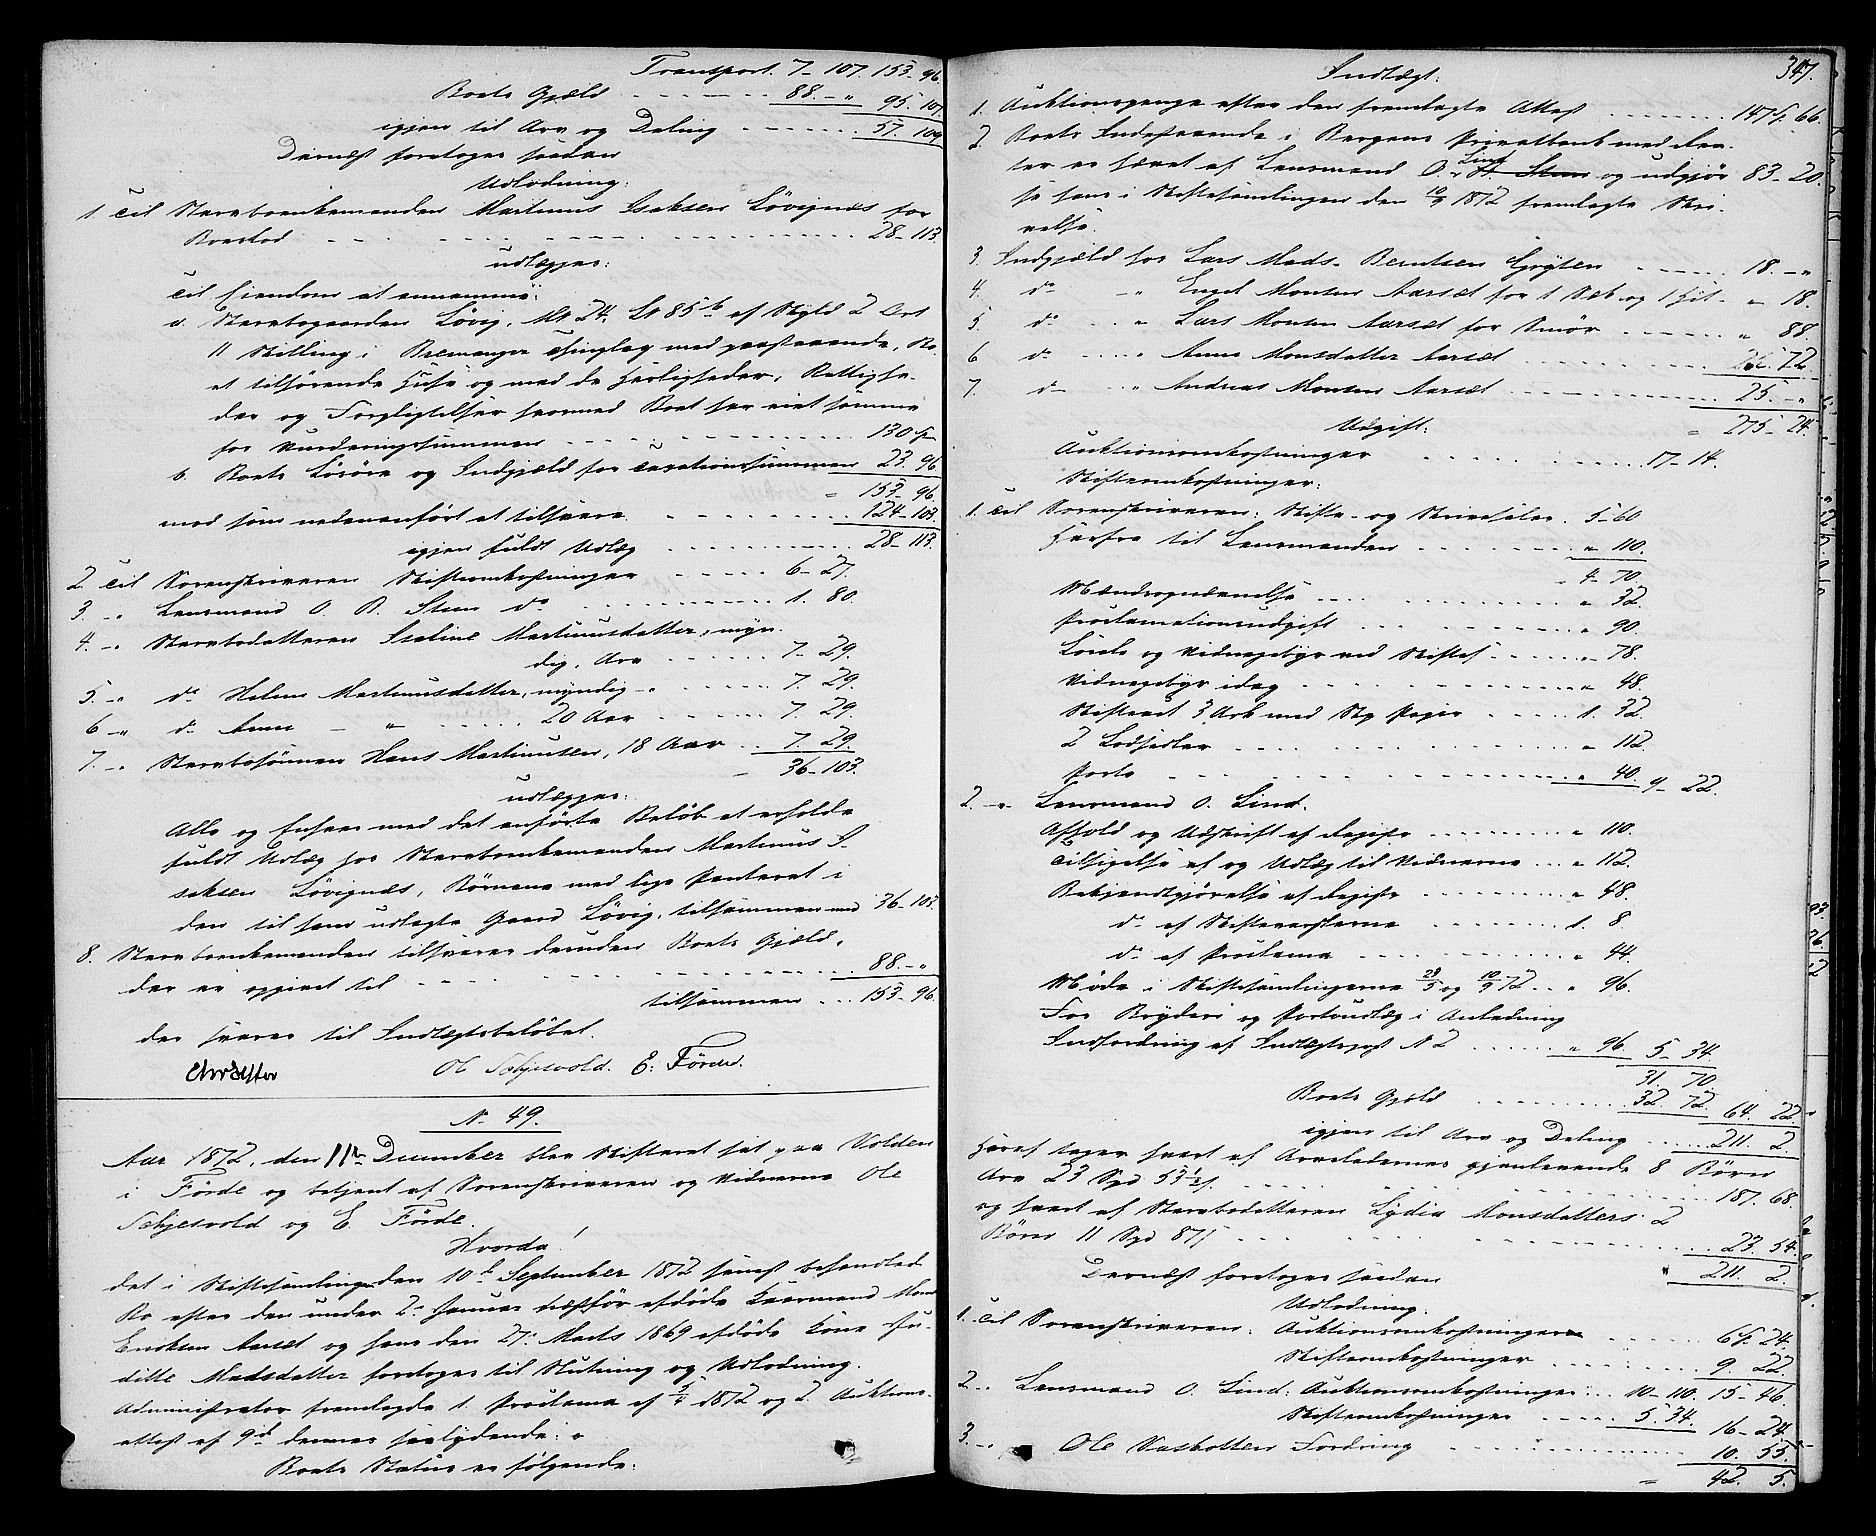 Transport. 7-107. 153-96.
Boets Gjæld 88-" 95. 107.
igjen til Arv og Deling 57. 109
Dernæst foretoges saadan
Udlodning:
1. Til Stervboenkemanden Martinus Isaksen Løvignæs for
Boeslod 28-113.
udlægges:
Til Eiendom at annamme:
a. Stervbogaarden Løvig, M.N. 24, L.N. 85b af Skyld 2 Ort
11 Skilling i Bremanger Thinglag med paastaaende, Bo-
et tilhørende Huse og med de Herligheder, Rettighe-
der og Forpligtelser hvormed Boet har eiet samme
for Vurderingssummen 130 Sp
b. Boets Løsøre og Indgjæld for Taxationssummen 23. 96
" 153-96.
mod som nedenanført at tilsvare 124-103.
igjen fuldt Udlæg 28-113.
2. Til Sorenskriveren Skifteomkostninger 6-27.
3. " Lensmand O. A. Steen do 1. 80.
4. " Stervbodatteren Isaline Martinusdatter, myn-
dig, Arv 7-29.
5. " do Helene Martinusdatter, myndig " 7. 29.
6. " do Anne - " 20 Aar 7. 29.
7. " Stervbosønnen Hans Martinusen, 18 Aar 7. 29.
36-103.
udlægges:
Alle og Enhver med det anførte Beløb at erholde
fuldt Udlæg hos Stervboenkemanden Martinus I-
saksen Løvignæs, Børnene med lige Panteret i
den til ham udlagte Gaard Løvig, tilsammen med 36-103.
8. Stervboenkemanden tilsvarer desuden Boets Gjæld,
der er opgivet til 88-"
tilsammen 153-96.
der svarer til Indtægtsbeløbet.
Ol Schjesvold. E. Förde.
No 49.
Aar 1872, den 11te December blev Skifteret sat paa Volden
i Förde og betjent af Sorenskriveren og Vidnerne Ole
Schjesvold og E. Förde.
Hvorda!
det i Skiftesamlingen den 10de September 1872 senest behandlede
Bo efter den under 2. Januar afdøde Kaarmand Mons
Eriksen Aarset og hans den 27. Marts 1869 afdøde Kone Ju-
ditte Madsdatter foretoges til Slutning og Udlodning.
Administrator fremlagde 1. Proclama af 5/4 1872 og 2. Auktions-
attest af 9de dennes saalydende: "
Boets Status er følgende:
347.
Indtægt:
1. Auktionspenge efter den fremlagte Attest 147 Sp. 66.
2 Boets Indestaaende i Bergens Privatbank med Ren-
ter er hævet af Lensmand O. Lind og udgjør 83-20.
se hans i Skiftesamlingen den 10/9 1872 fremlagte Skri-
velse.
3. Indgjæld hos Lars Mads- Berntsen Gryten 18. -"
4. do " Engel Monsen Aarset for 1 " 18.
5. do " Lars Monsen Aarset for Smör " 88.
6 do " Anne Monsdatter Aarset 72
7. do " Andreas Monsen Aarset 25. -"
" 275-24.
Udgift:
Auktionsomkostninger 17-14.
Skifteomkostninger:
1. Til Sorenskriveren: Skifte- og Skrivesaler 5-60
Herfra til Lensmanden " 110.
4-70.
Mændsopnævnelse " 32.
Proclamationsudgift " 90.
Læsels og Vidnegebyr ved Skiftet " 78.
Vidnegebyr idag " 48.
Skifteret 3 Ark med St. Papir 1. 32.
2 Lodsedler " 112.
Porto " 40. 9-22.
2. " Lensmand O. Lind.
Afhold og Udskrift af Regist. " 110.
Tilsigelse af og Udlæg til Vidnerne " 112.
Bekjendtgjørelse af Regist. " 48.
do af Skiftevarslerne 1. 8.
do af Proclama " 44.
Møde i Skiftesamlingerne 28/5 og 10/9 72 " 96.
For Bryderi og Portoudlæg i Anledning
Indfordring af Indtægtspost N 2 " 96. 5-34.
31. 70.
Boets Gjæld 32. 72. 64. 22
igjen til Arv og Deling 211. 2.
Heraf tager hvert af Arveladernes gjenlevende 8 Børn
Arv 23 Spd 53½ s. 187. 68.
og hvert af Stervbodatteren Lydia Monsdatters 2
Børn 11 Spd 87 s 23. 54.
" 211. 2.
Dernæst foretoges saadan
Udlodning.
1. Til Sorenskriveren: Auktionsomkostningerne 6 Sp. 24.
Skifteomkostninger 9. 22. 15-46.
2. " Lensmand O. Lind: Auktionsomkostninger 10-110.
Skifteomkostninger 5. 34. 16-24.
3. " Ole Vasbotten Fordring 10. 55.
" 42. 5.